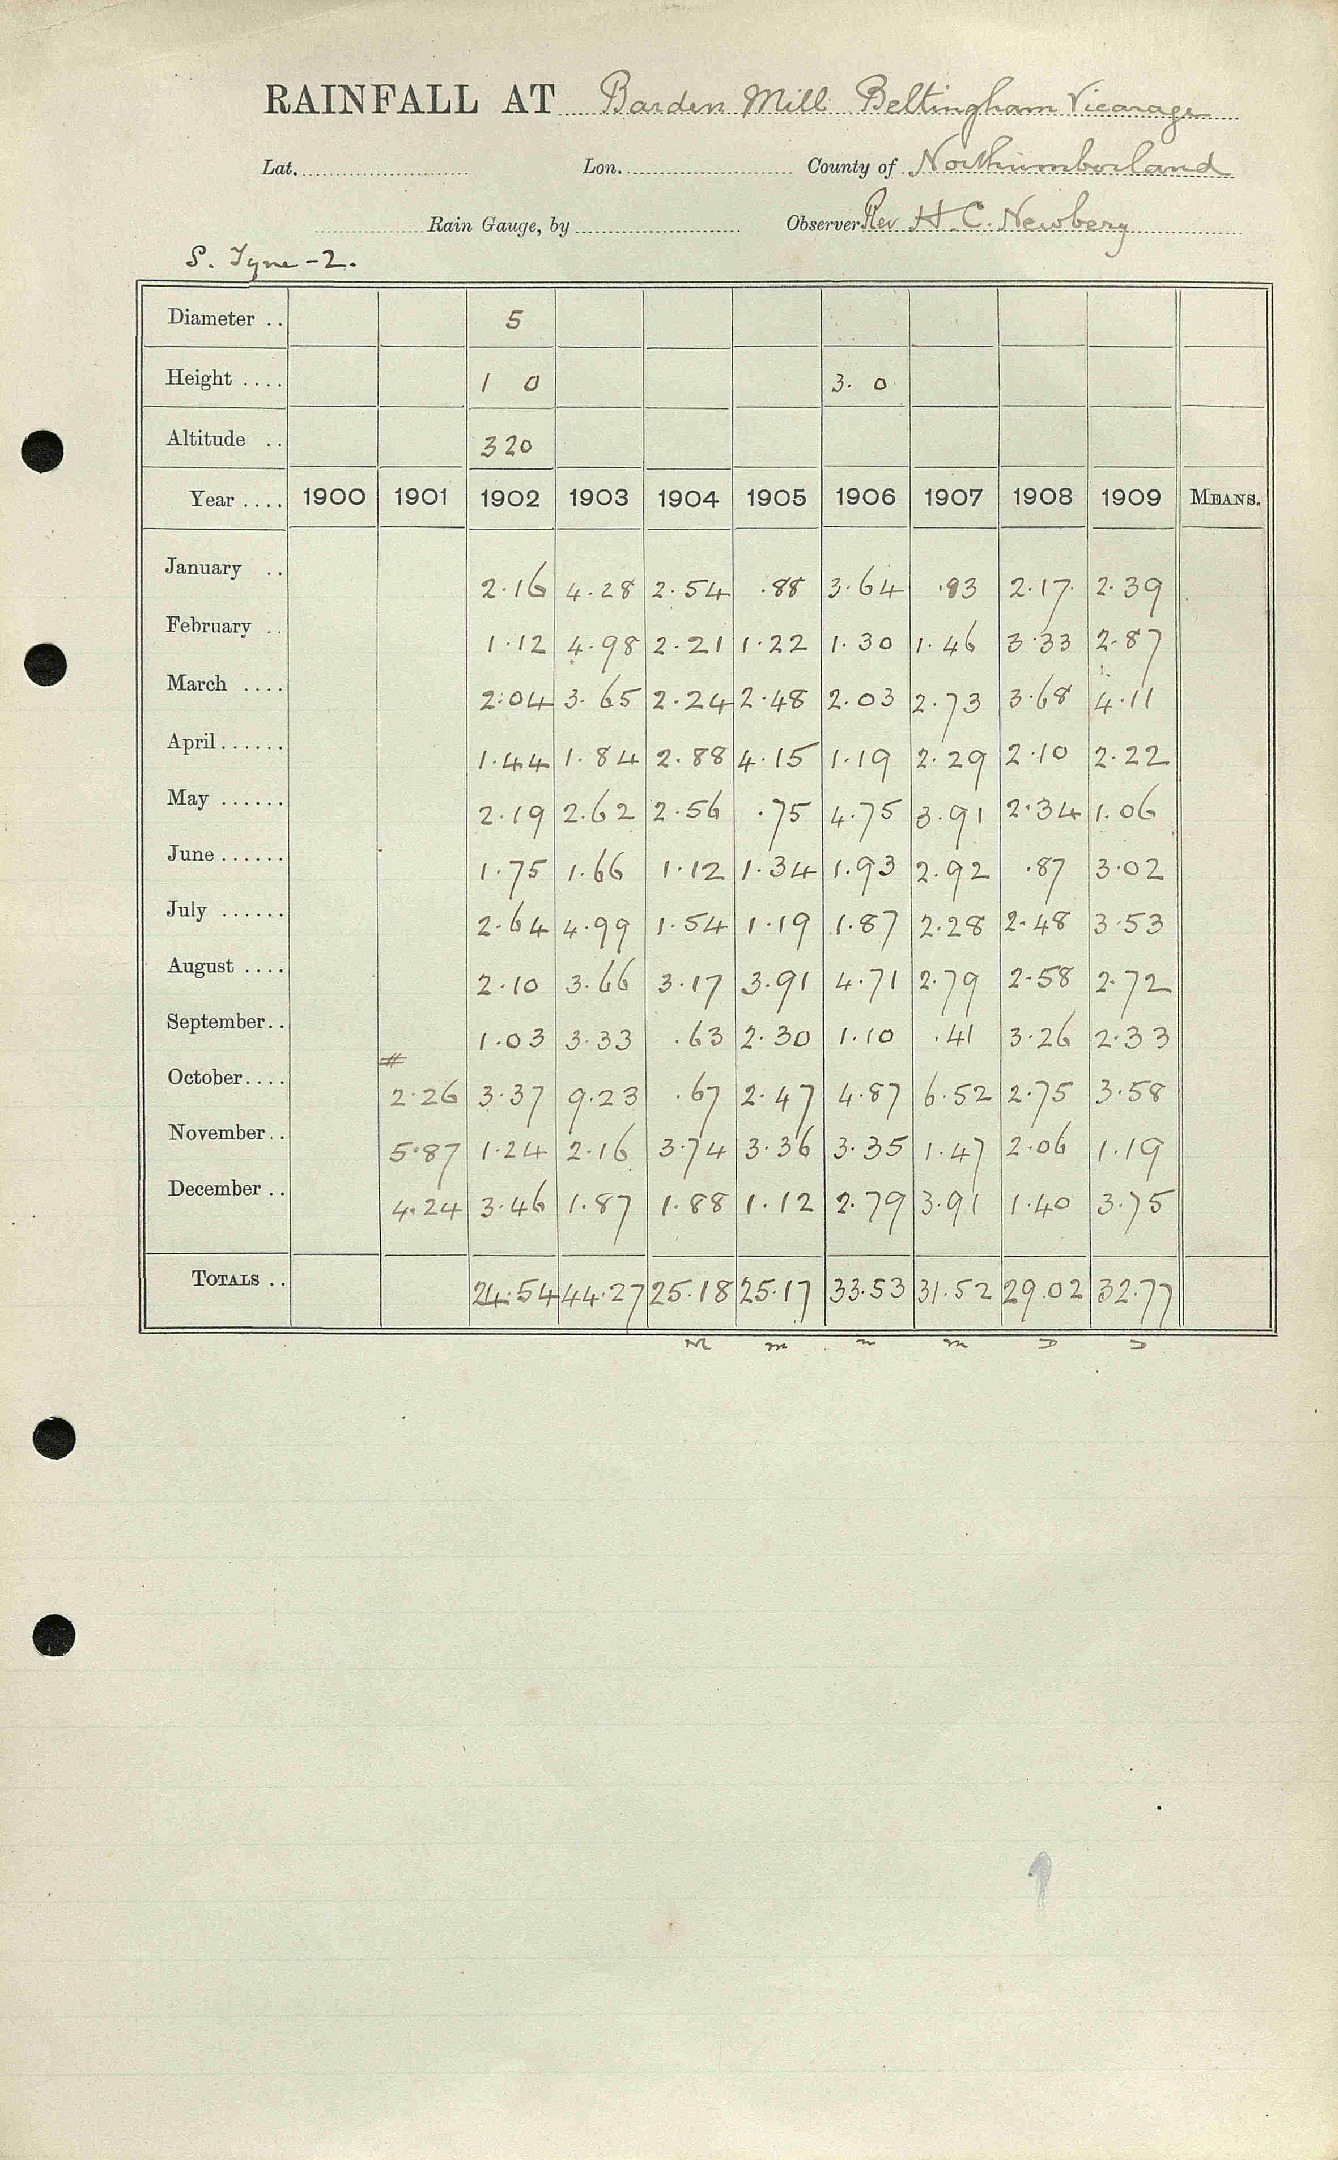 RAINFALL AT Barden Mill Beltingham Vicarage
Lat. Lon. County of Northumberland
Rain Gauge, by Observer Rev H.C. Newbery
S. Tyne - 2.
Diameter .. 5
Height .... 1 0 3. 0
Altitude .. 320
Year .... 1900 1901 1902 1903 1904 1905 1906 1907 1908 1909 MEANS.
January .. 2.16 4.28 2.54 .88 3.64 .83 2.17 2.39
February .. 1.12 4.98 2.21 1.22 1.30 1.46 3.33 2.87
March .... 2.04 3.65 2.24 2.48 2.03 2.73 3.68 4.11
April ...... 1.44 1.84 2.88 4.15 1.19 2.29 2.10 2.22
May ...... 2.19 2.62 2.56 .75 4.75 3.91 2.34 1.06
June ...... 1.75 1.66 1.12 1.34 1.93 2.92 .87 3.02
July ...... 2.64 4.99 1.54 1.19 1.87 2.28 2.48 3.53
August .... 2.10 3.66 3.17 3.91 4.71 2.79 2.58 2.72
September .. 1.03 3.33 .63 2.30 1.10 .41 3.26 2.33
#
October .... 2.26 3.37 9.23 .67 2.47 4.87 6.52 2.75 3.58
November .. 5.87 1.24 2.16 3.74 3.36 3.35 1.47 2.06 1.19
December .. 4.24 3.46 1.87 1.88 1.12 2.79 3.91 1.40 3.75
TOTALS .. 24.54 44.27 25.18 25.17 33.53 31.52 29.02 32.77